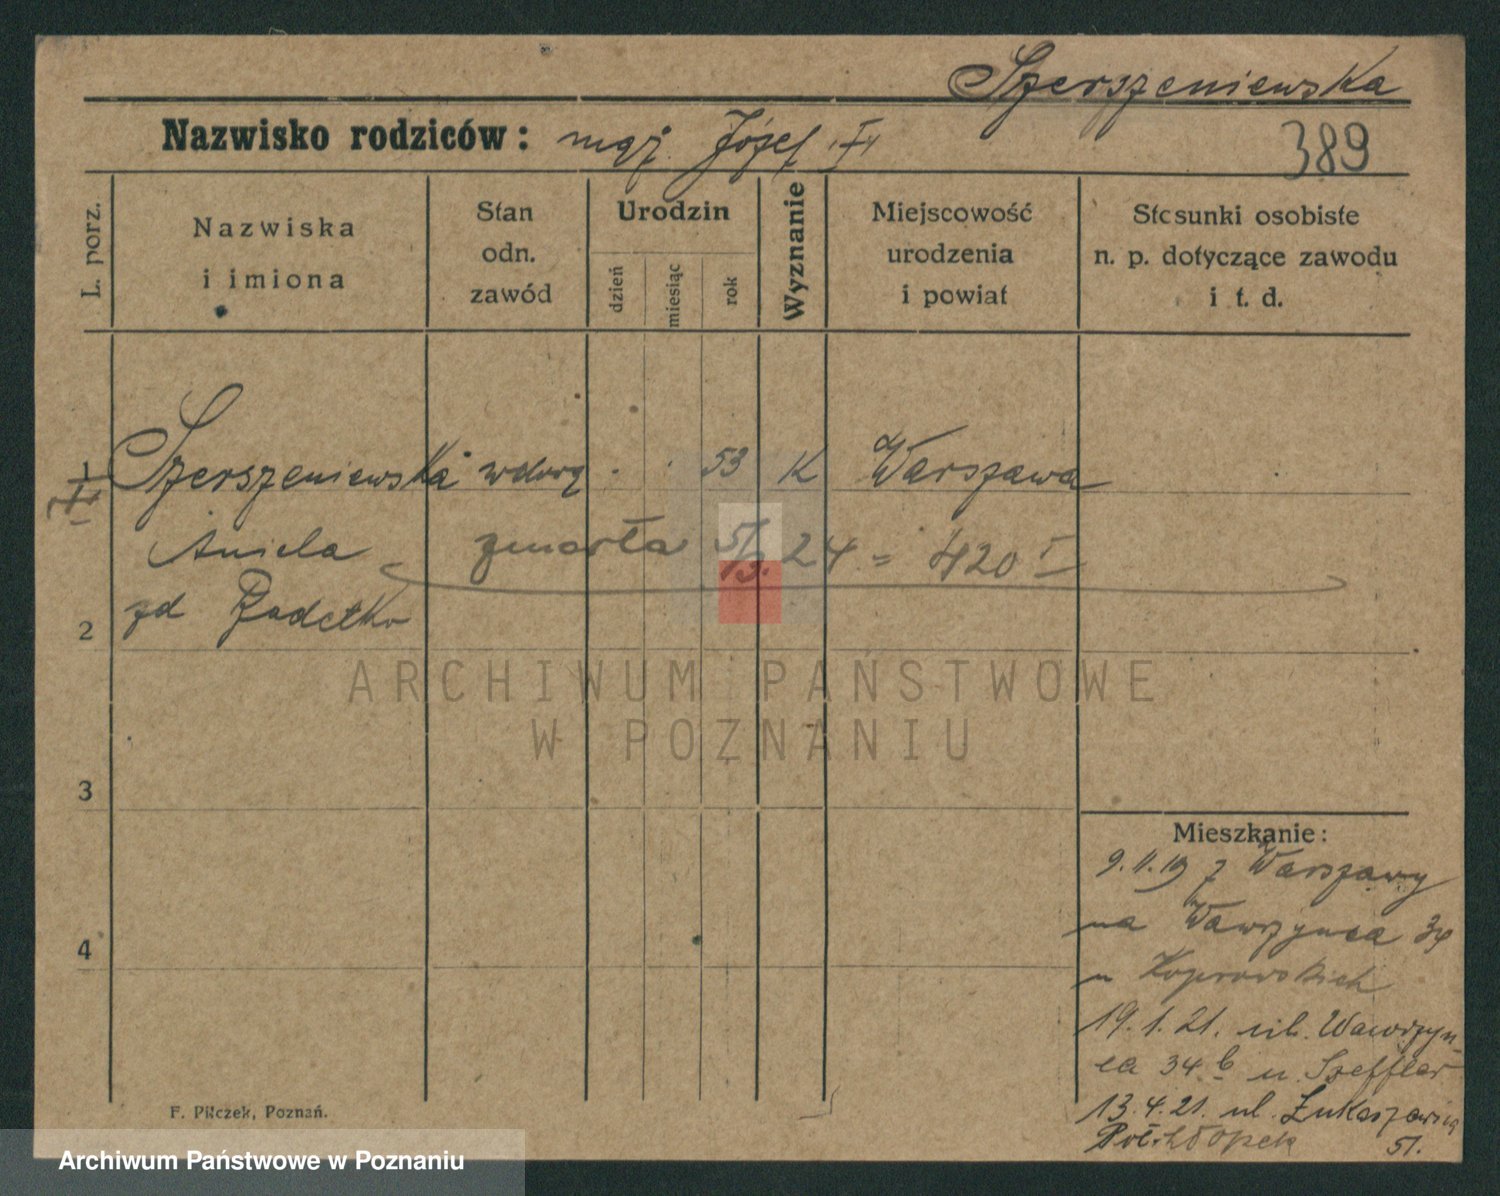 Szerszeniewska
Nazwisko rodziców: mąż. Józef
389
L. porz.
Nazwiska
i imiona
Stan
odn.
zawód
Urodzin
dzień
miesiąc
rok
Wyznanie
Miejscowość
urodzenia
i powiat
Stosunki osobiste
n. p. dotyczące zawodu
i t. d.
1 Szerszeniewska wdowa 53 K Warszawa
Aniela zmarła 5/3. 24 = 420 I
2 zd
ARCHIWUM PAŃSTWOWE
W POZNANIU
3
Mieszkanie:
9.11.19 z Warszawy
na Wawrzynca 34
u Koprowskich
4
19.1.21. ul. Wawrzyn-
ca 34 b u. Szeffler
13.4.21. ul. Łukaszewicza
51.
F. Pilczek, Poznań.
Archiwum Państwowe w Poznaniu